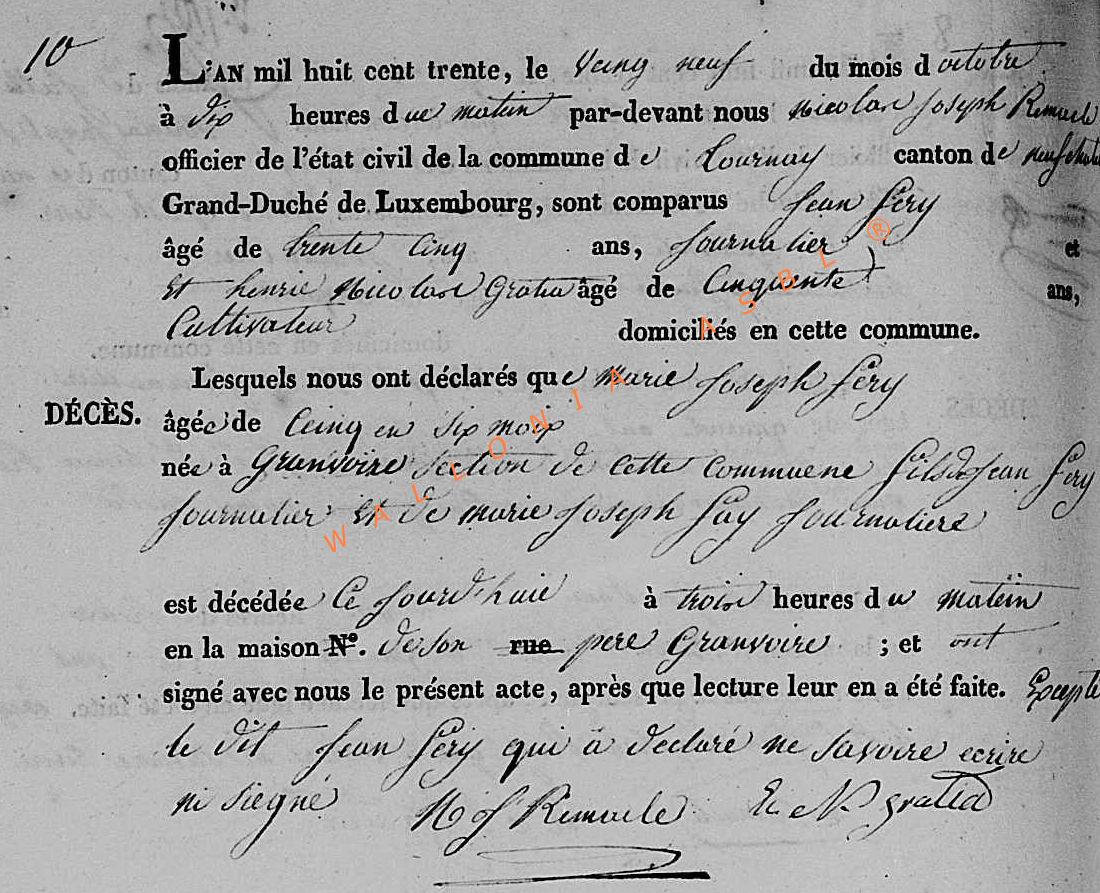 10
L'AN mil huit cent trente, le Veing neuf du mois d'octobre
à dix heures d ue matin par-devant nous Nicolas Joseph Remacle
officier de l'état civil de la commune d e Tournay canton de neufchateau
Grand-Duché de Luxembourg, sont comparus Jean Féry
âgé de trente Cinq ans, Journalier et
Et henrie Nicolas Gratia âgé de Cinquente ans,
Cultivateur domiciliés en cette commune.
Lesquels nous ont déclarés que marie Joseph Féry
DÉCÈS. âgée de Ceinq en Six mois
née à Granvoire Section de Cette Commuene fils de Jean Fery
Journalier Et de marie Joseph Journaliere
est décédée Ce Jourd'huie à trois heures du matin
en la maison N°. de Son rue pere Granvoire ; et ont
signé avec nous le présent acte, après que lecture leur en a été faite. Excepte
le dit Jean Féry qui a declaré ne Savoire ecrire
ni Siegné N J Remacle H N gratia
WALLONIA ASBL ®